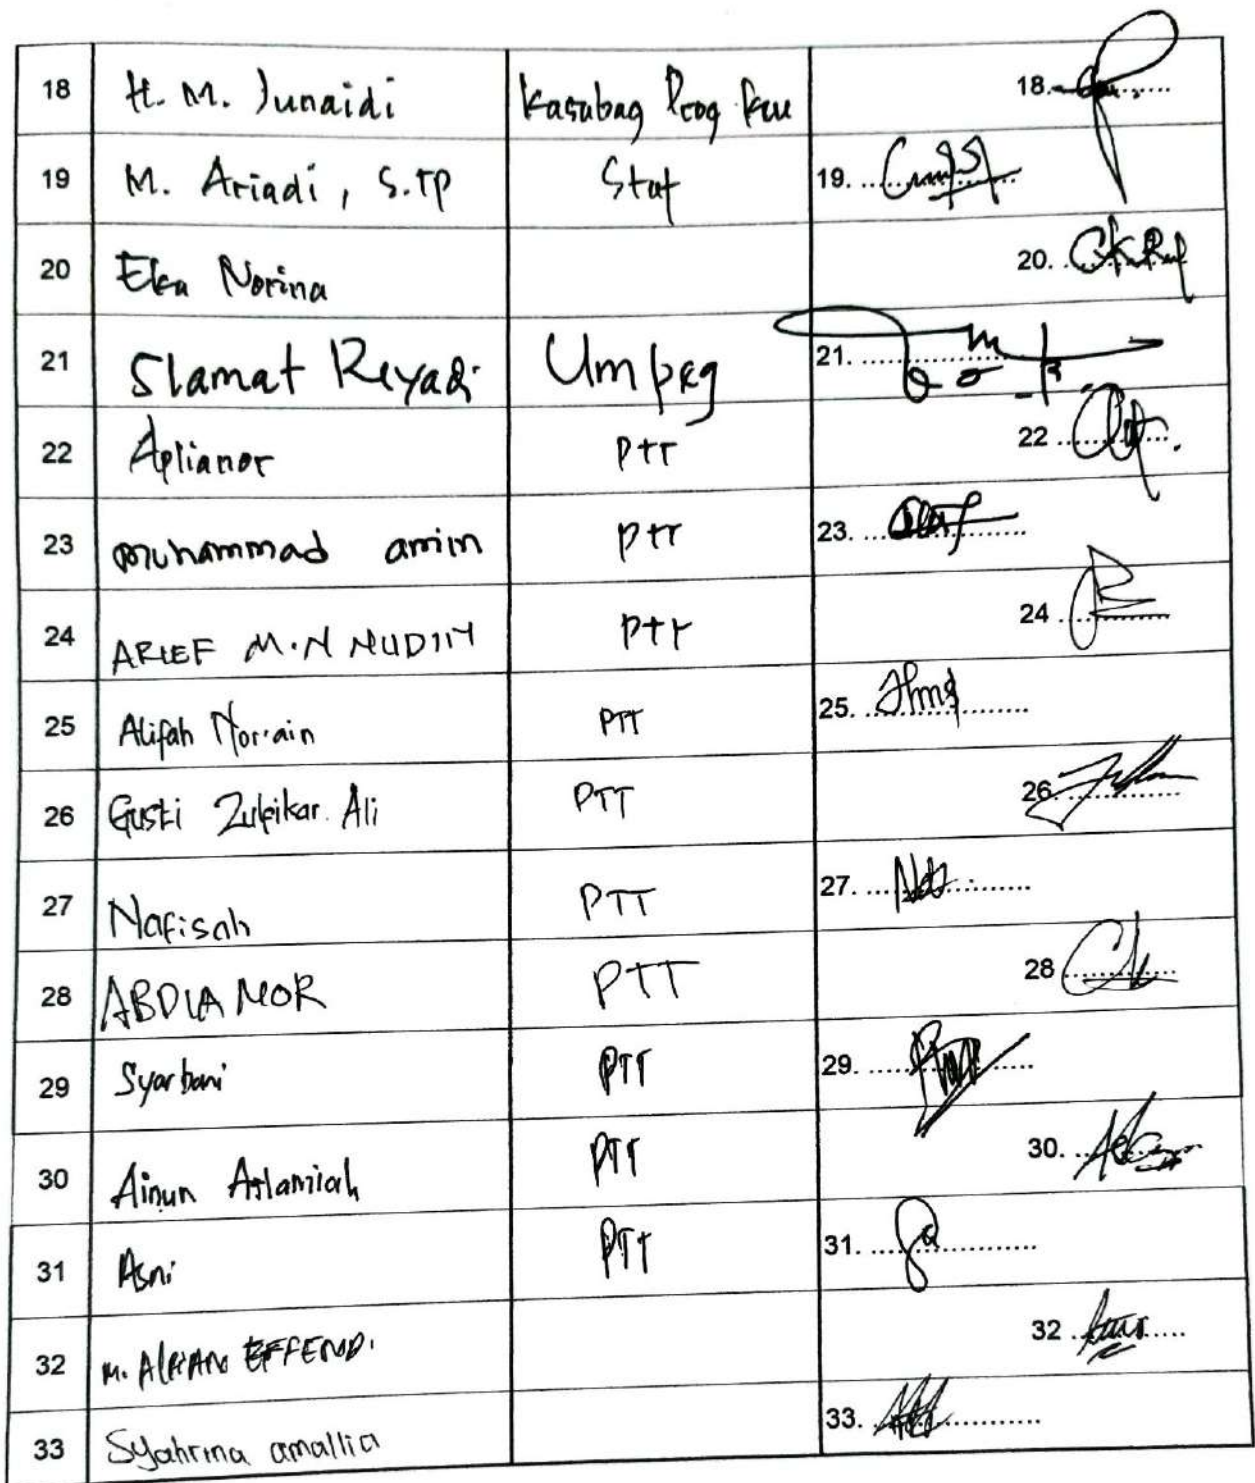 18 H. M. Junaidi Kasubag Prog Keu 18. ..........
19 M. Ariadi, S.TP Staf 19. ..........
20 Eka Norina 20. ..........
21 Slamat Reyadi Umpeg 21. ..........
22 Aplianor PTT 22 ..........
23 muhammad amin PTT 23. ..........
24 ARIEF M.N NUDIN PTT 24 ..........
25 Alifah Norain PTT 25. ..........
26 Gusti Zulfikar Ali PTT 26. ..........
27 Nafisah PTT 27. ..........
28 ABDLA NOR PTT 28 ..........
29 Syarbani PTT 29. ..........
30 Ainun Aslamiah PTT 30. ..........
31 Asni PTT 31. ..........
32 M. ALFIAN EFFENDI 32 ..........
33 Syahrina amallia 33. ..........